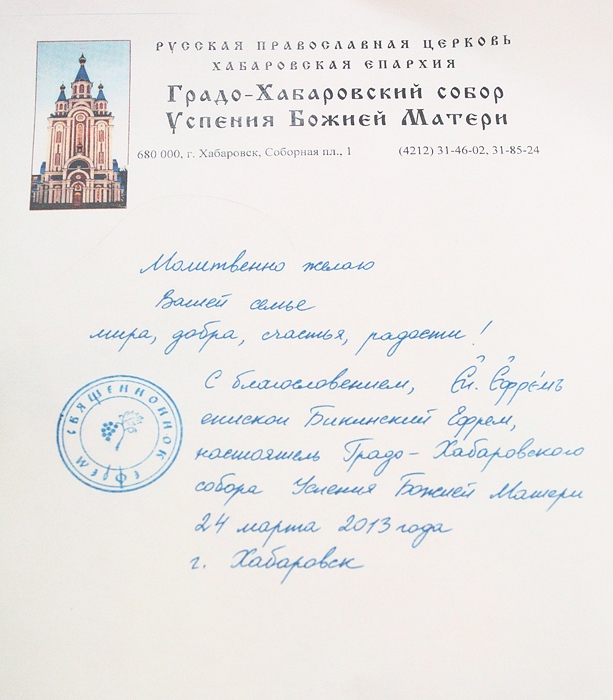 РУССКАЯ ПРАВОСЛАВНАЯ ЦЕРКОВЬ
ХАБАРОВСКАЯ ЕПАРХИЯ
Градо-Хабаровский собор
Успения Божией Матери
680 000, г. Хабаровск, Соборная пл., 1 (4212) 31-46-02, 31-85-24
Молитвенно желаю
Вашей семье
мира, добра, счастья, радости!
С благословением, Еп. Ефрéмъ
епископ Бикинский Ефрем,
настоятель Градо-Хабаровского
собора Успения Божией Матери
24 марта 2013 года
г. Хабаровск
СВЯЩЕННОИНОК ЕФРЕМ